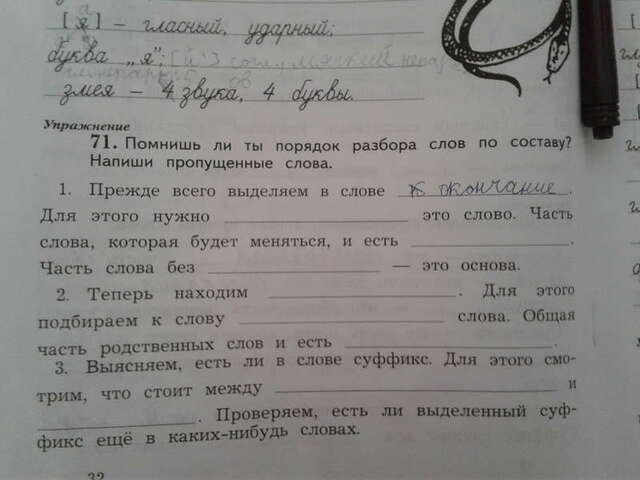 [я] – гласный, ударный;
буква „я“; [й'] согл., мягкий
змея – 4 звука, 4 буквы.
Упражнение
71. Помнишь ли ты порядок разбора слов по составу?
Напиши пропущенные слова.
1. Прежде всего выделяем в слове окончание.
Для этого нужно ______ это слово. Часть
слова, которая будет меняться, и есть ______.
Часть слова без ______ — это основа.
2. Теперь находим ______. Для этого
подбираем к слову ______ слова. Общая
часть родственных слов и есть ______.
3. Выясняем, есть ли в слове суффикс. Для этого смо-
трим, что стоит между ______ и
______. Проверяем, есть ли выделенный суф-
фикс ещё в каких-нибудь словах.
32